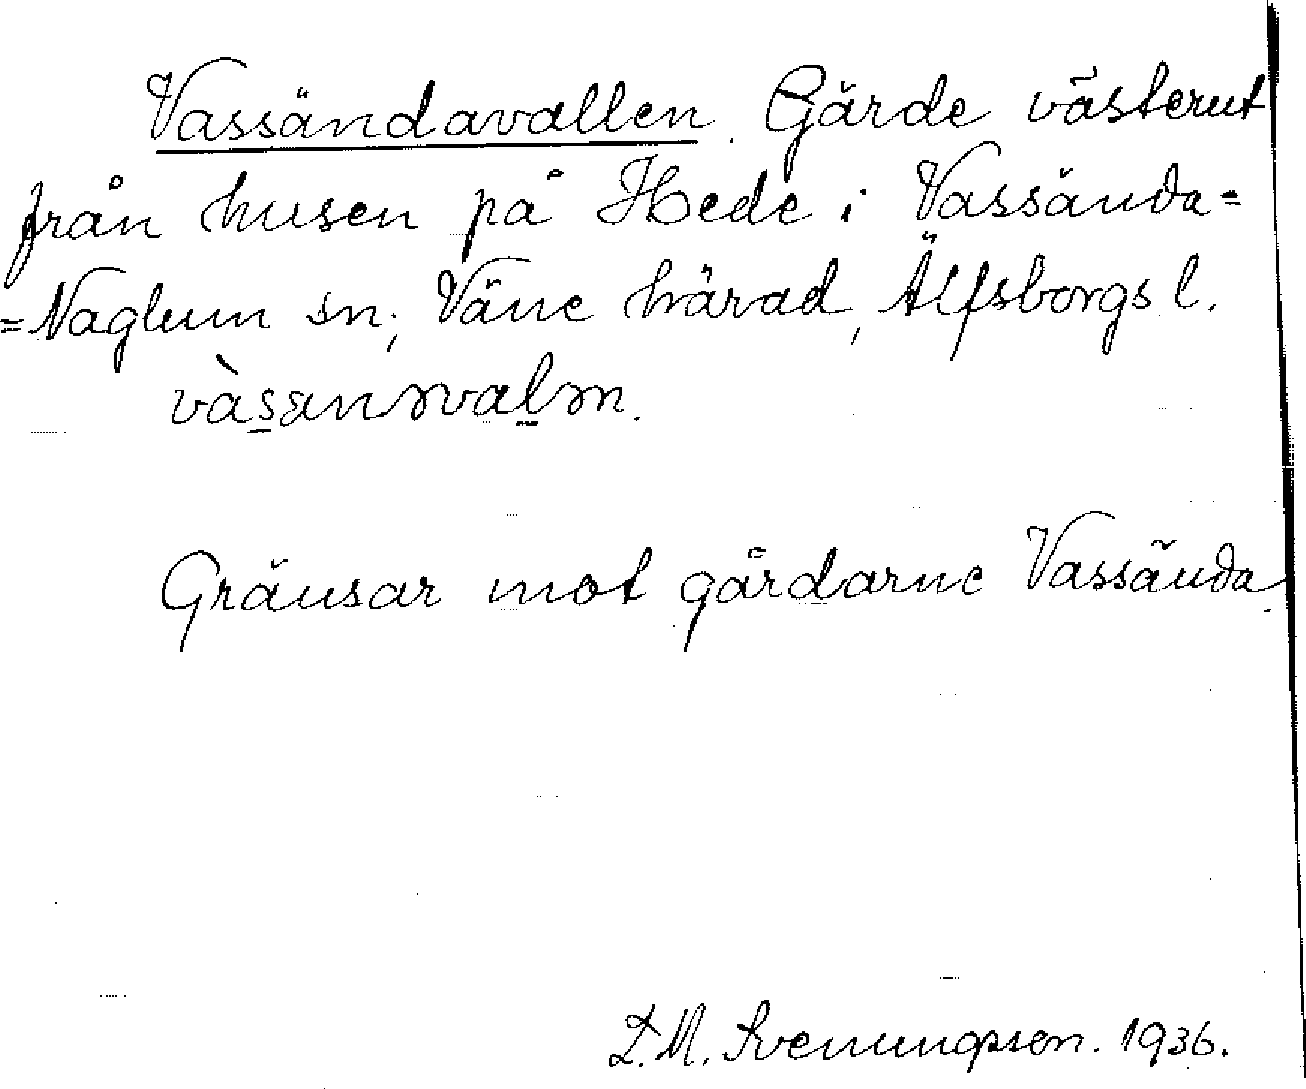 Vassändavallen. Gärde västerut
från husen på Hede i Vassända=
=Naglum sn, Väne härad, Älfsborgs l.
Gränsar mot gårdarne Vassända.
L. M. Svenungsson. 1936.